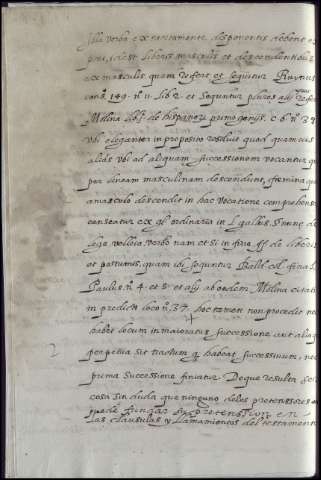 illa verba ex testamento disponentis debent
pris, id est liberis masculis et descendentibus
ex masculis quam refert et sequitur
cons. 149. nº 11. lib 2. et sequntur plures alij
Molina lib. de hispanor primogenijs. c 6 nº 37
vbi eleganter in proposito
alias vel ad aliquam successionem vocantur
per lineam masculinam descendunt, femina
a masculo descendit in hac vocatione
censeatur ex gl ordinaria in l gallus. §. nunc de
lege velleia verbo nam et si in fine ff de liberis
et postumis, quam ibi sequntur Bald.
Paulus nº 4. et 5. et alij ab eodem Molina citati
in predicto loco nº. 37. hoc tamen non procedit
habet locum in maioratus successione aut
perpetua sit tractum q habeat successiuum,
prima successione finiatur De que resulta ser
cosa sin duda que ninguno de los pretensores
puede fundar su pretension en
las clausulas y llamamientos del testamento